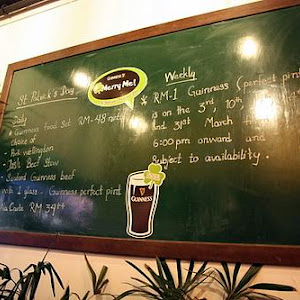 St. Patrick's Day
Daily
* Guinness food Set RM-48 nett
choice of
Pork wellington
Irish Beef Stew
Sauteed Guinness beef
with 1 glass - Guinness perfect pint
Ala Carte RM 34++
GUINNESS
Merry Me!
Weekly
* RM-1 Guinness (perfect pint)
is on the 3rd, 10th
and 31st March f
6:00 pm onward and
Subject to availability.
GUINNESS